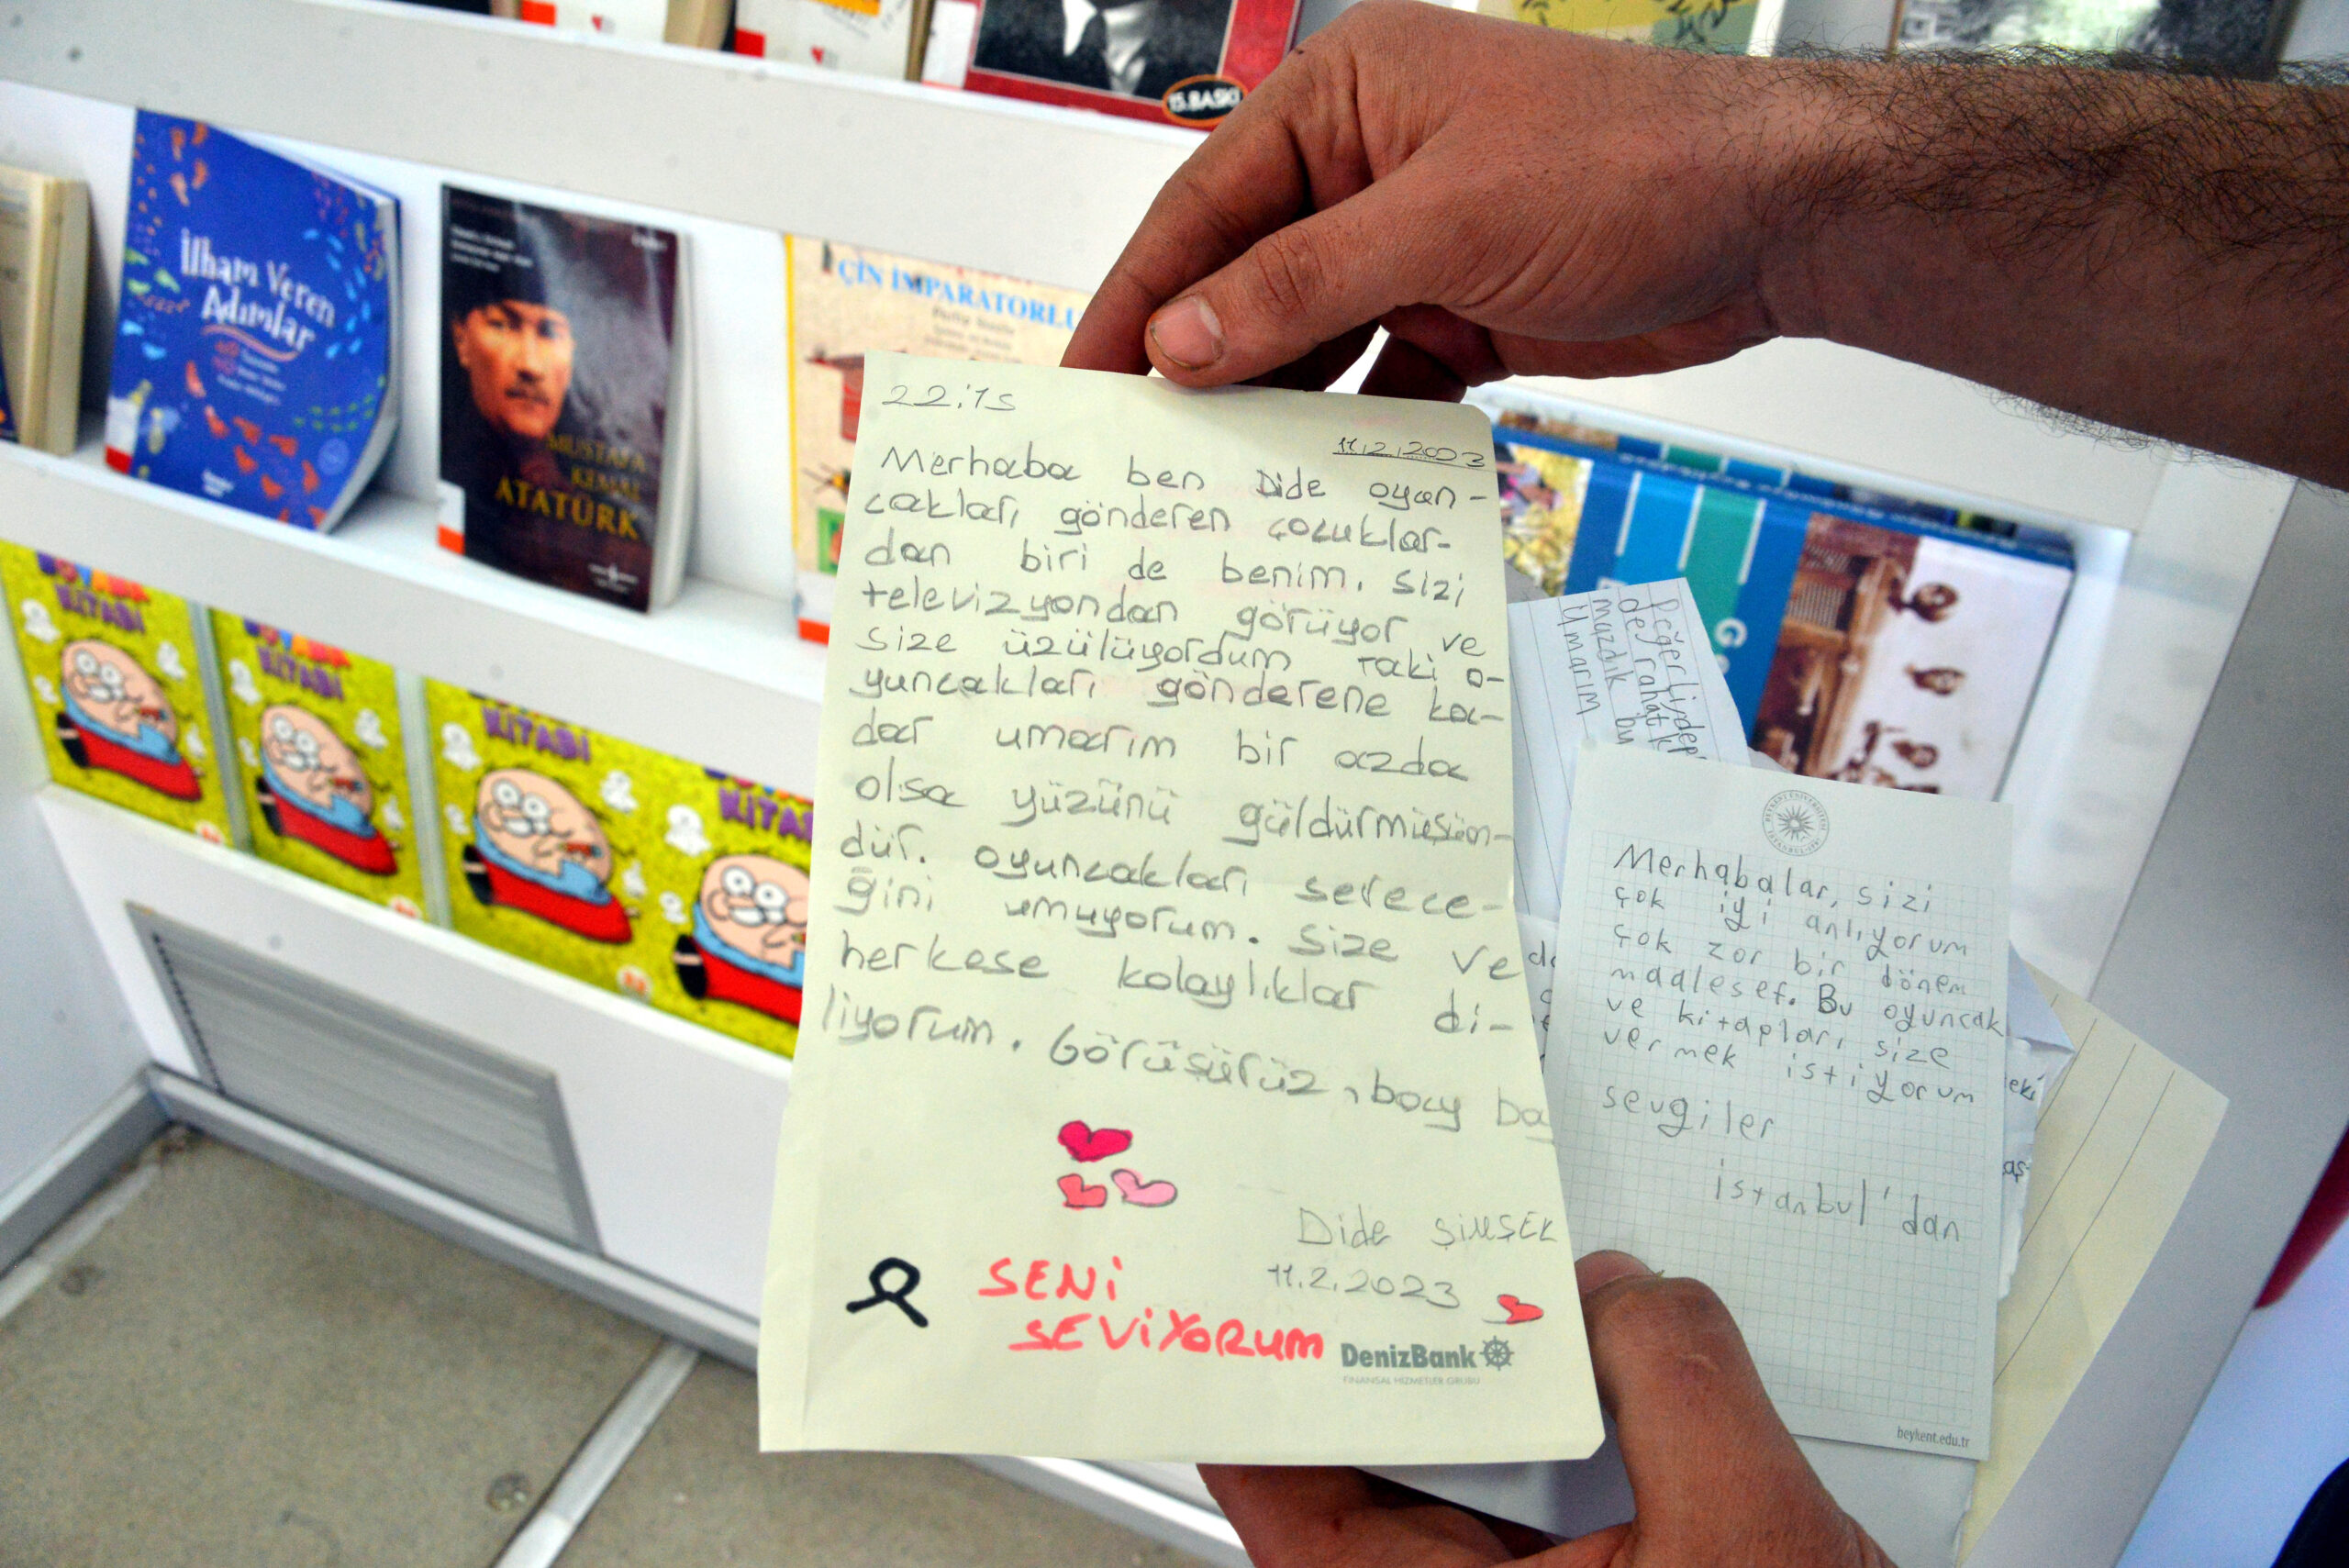 15.BASKI
İlham Veren
Adımlar
MUSTAFA
KEMAL
ATATÜRK
ÇİN İMPARATORLU
KİTABI
KİTABI
KİTABI
KİTA
22:15
11.2.2023
Merhaba ben Dide oyun-
cakları gönderen çocuklar-
dan biri de benim. sizi
televizyondan görüyor ve
size üzülüyordum Taki o-
yuncakları gönderene ka-
dar umarım bir azda
olsa yüzünü güldürmüşün-
dür. oyuncakları sevece-
ğini umuyorum. size ve
herkese kolaylıklar di-
liyorum. Görüşürüz, bay ba
Dide ŞİMŞEK
11.2.2023
SENİ
SEVİYORUM
DenizBank
FİNANSAL HİZMETLER GRUBU
değerlinden
de rahatk
mazdık bu
Umarım
Merhabalar, sizi
çok iyi anlıyorum
çok zor bir dönem
maalesef. Bu oyuncak
ve kitapları size
vermek istiyorum
sevgiler
İstanbul'dan
beykent.edu.tr